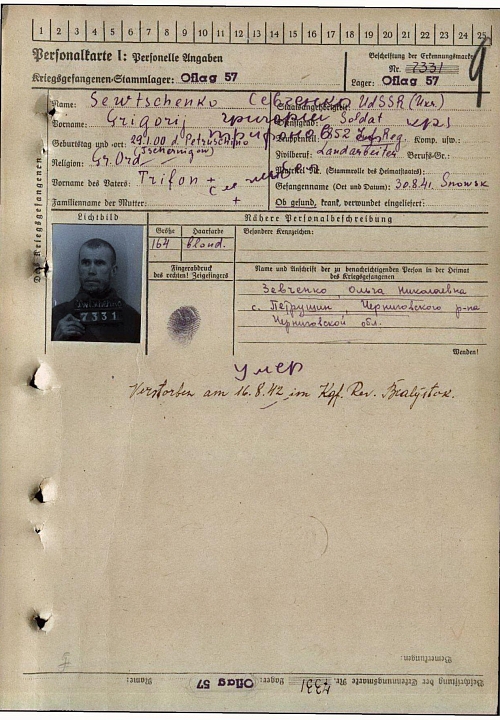 1 2 3 4 5 6 7 8 9 10 11 12 13 14 15 16 17 18 19 20 21 22 23 24 25
Personalkarte I: Personelle Angaben
Kriegsgefangenen-Stammlager: Oflag 57
Beschriftung der Erkennungsmarke
Nr. 7331
Lager: Oflag 57
9
Des Kriegsgefangenen
Name: Sewtschenko Севченко
Vorname: Grigorij Григорий
Geburtstag und -ort: 29.1.00 d. Petruschino
(Tschernigow)
Religion: Gr. Ord.
Vorname des Vaters: Trifon +
Familienname der Mutter: +
Staatsangehörigkeit: UdSSR (Ukr)
Dienstgrad: Soldat
Truppenteil: 352 Inf. Reg. Komp. usw.:
Zivilberuf: Landarbeiter Berufs-Gr.:
Matrikel Nr. (Stammrolle des Heimatstaates):
Gefangennahme (Ort und Datum): 30.8.41. Snowsk
Ob gesund, krank, verwundet eingeliefert:
Lichtbild
Nähere Personalbeschreibung
Größe Haarfarbe Besondere Kennzeichen:
164 blond.
Fingerabdruck
des rechten! Zeigefingers
Name und Anschrift der zu benachrichtigenden Person in der Heimat
des Kriegsgefangenen
Зевченко Ольга Николаевна
с. Петрушин, Черниговского р-на
Черниговской обл.
7331
Wenden!
умер
Verstorben am 16.8.42 im Kgf. Rev. Bialystok.
Bemerkungen:
Beschriftung der Erkennungsmarke Nr. 7331 Lager: Oflag 57 Name: